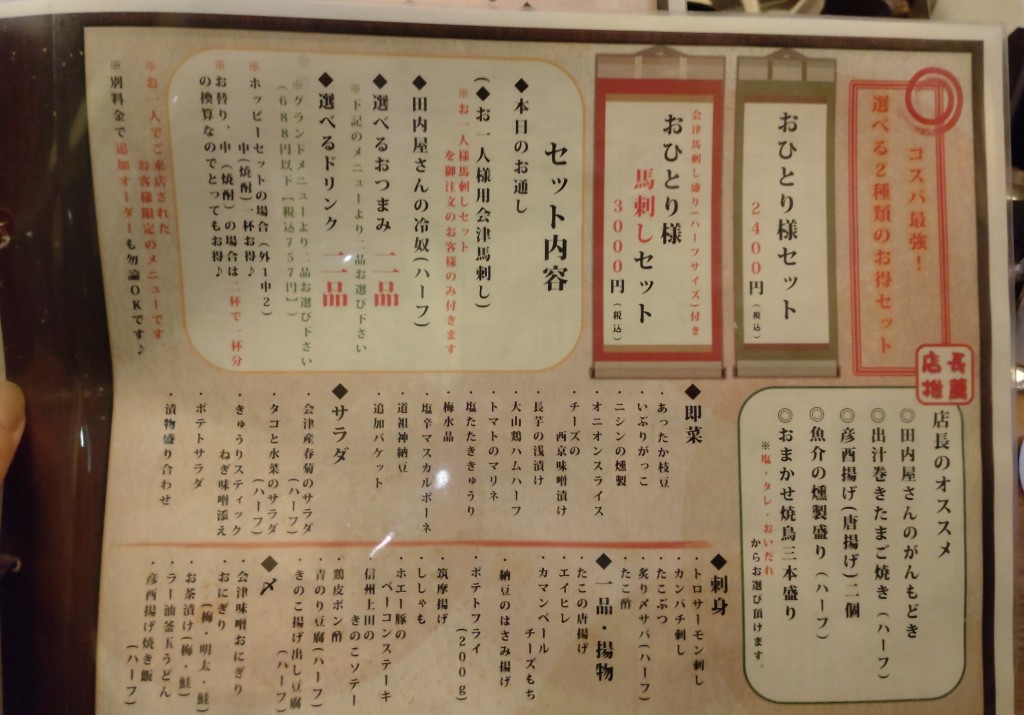 コスパ最強！
選べる２種類のお得セット
おひとり様セット
２４００円（税込）
会津馬刺し盛り（ハーフサイズ）付き
おひとり様
馬刺しセット
３０００円（税込）
セット内容
◆本日のお通し
（◆お一人様用会津馬刺し）
※お一人様馬刺しセット
を御注文のお客様のみ付きます
◆田内屋さんの冷奴（ハーフ）
◆選べるおつまみ 二品
※下記のメニューより二品お選び下さい
◆選べるドリンク 二品
※グランドメニューより二品お選び下さい
（６８８円以下【税込７５７円】）
※ホッピーセットの場合（外１中２）
中（焼酎）一杯お得♪
※お替り、中（焼酎）の場合は二杯で一杯分
の換算なのでとってもお得♪
※お一人でご来店された
お客様限定のメニューです。
※別料金で追加オーダーも勿論ＯＫです♪
店長推薦
店長のオススメ
◎田内屋さんのがんもどき
◎出汁巻きたまご焼き（ハーフ）
◎彦酉揚げ（唐揚げ）二個
◎魚介の燻製盛り（ハーフ）
◎おまかせ焼鳥三本盛り
※塩・タレ・おいだれ
からお選び頂けます。
◆即菜
・あったか枝豆
・いぶりがっこ
・ニシンの燻製
・オニオンスライス
・チーズの
西京味噌漬け
・長芋の浅漬け
・大山鶏ハムハーフ
・トマトのマリネ
・塩たたききゅうり
・梅水晶
・塩辛マスカルポーネ
・道祖神納豆
・追加バケット
◆サラダ
・会津産春菊のサラダ
（ハーフ）
・タコと水菜のサラダ
（ハーフ）
・きゅうりスティック
ねぎ味噌添え
・ポテトサラダ
・漬物盛り合わせ
◆刺身
・トロサーモン刺し
・カンパチ刺し
・たこぶつ
・炙り〆サバ（ハーフ）
・たこ酢
◆一品・揚物
・たこの唐揚げ
・エイヒレ
・カマンベール
チーズもち
・納豆のはさみ揚げ
・ポテトフライ
（２００ｇ）
・筑摩揚げ
・ししゃも
・ホエー豚の
ベーコンステーキ
・信州上田の
きのこソテー
・鶏皮ポン酢
・青のり豆腐（ハーフ）
・きのこ揚げ出し豆腐
（ハーフ）
◆〆
・会津味噌おにぎり
・おにぎり
（梅・明太・鮭）
・お茶漬け（梅・鮭）
・ラー油釜玉うどん
・彦酉揚げ焼き飯
（ハーフ）